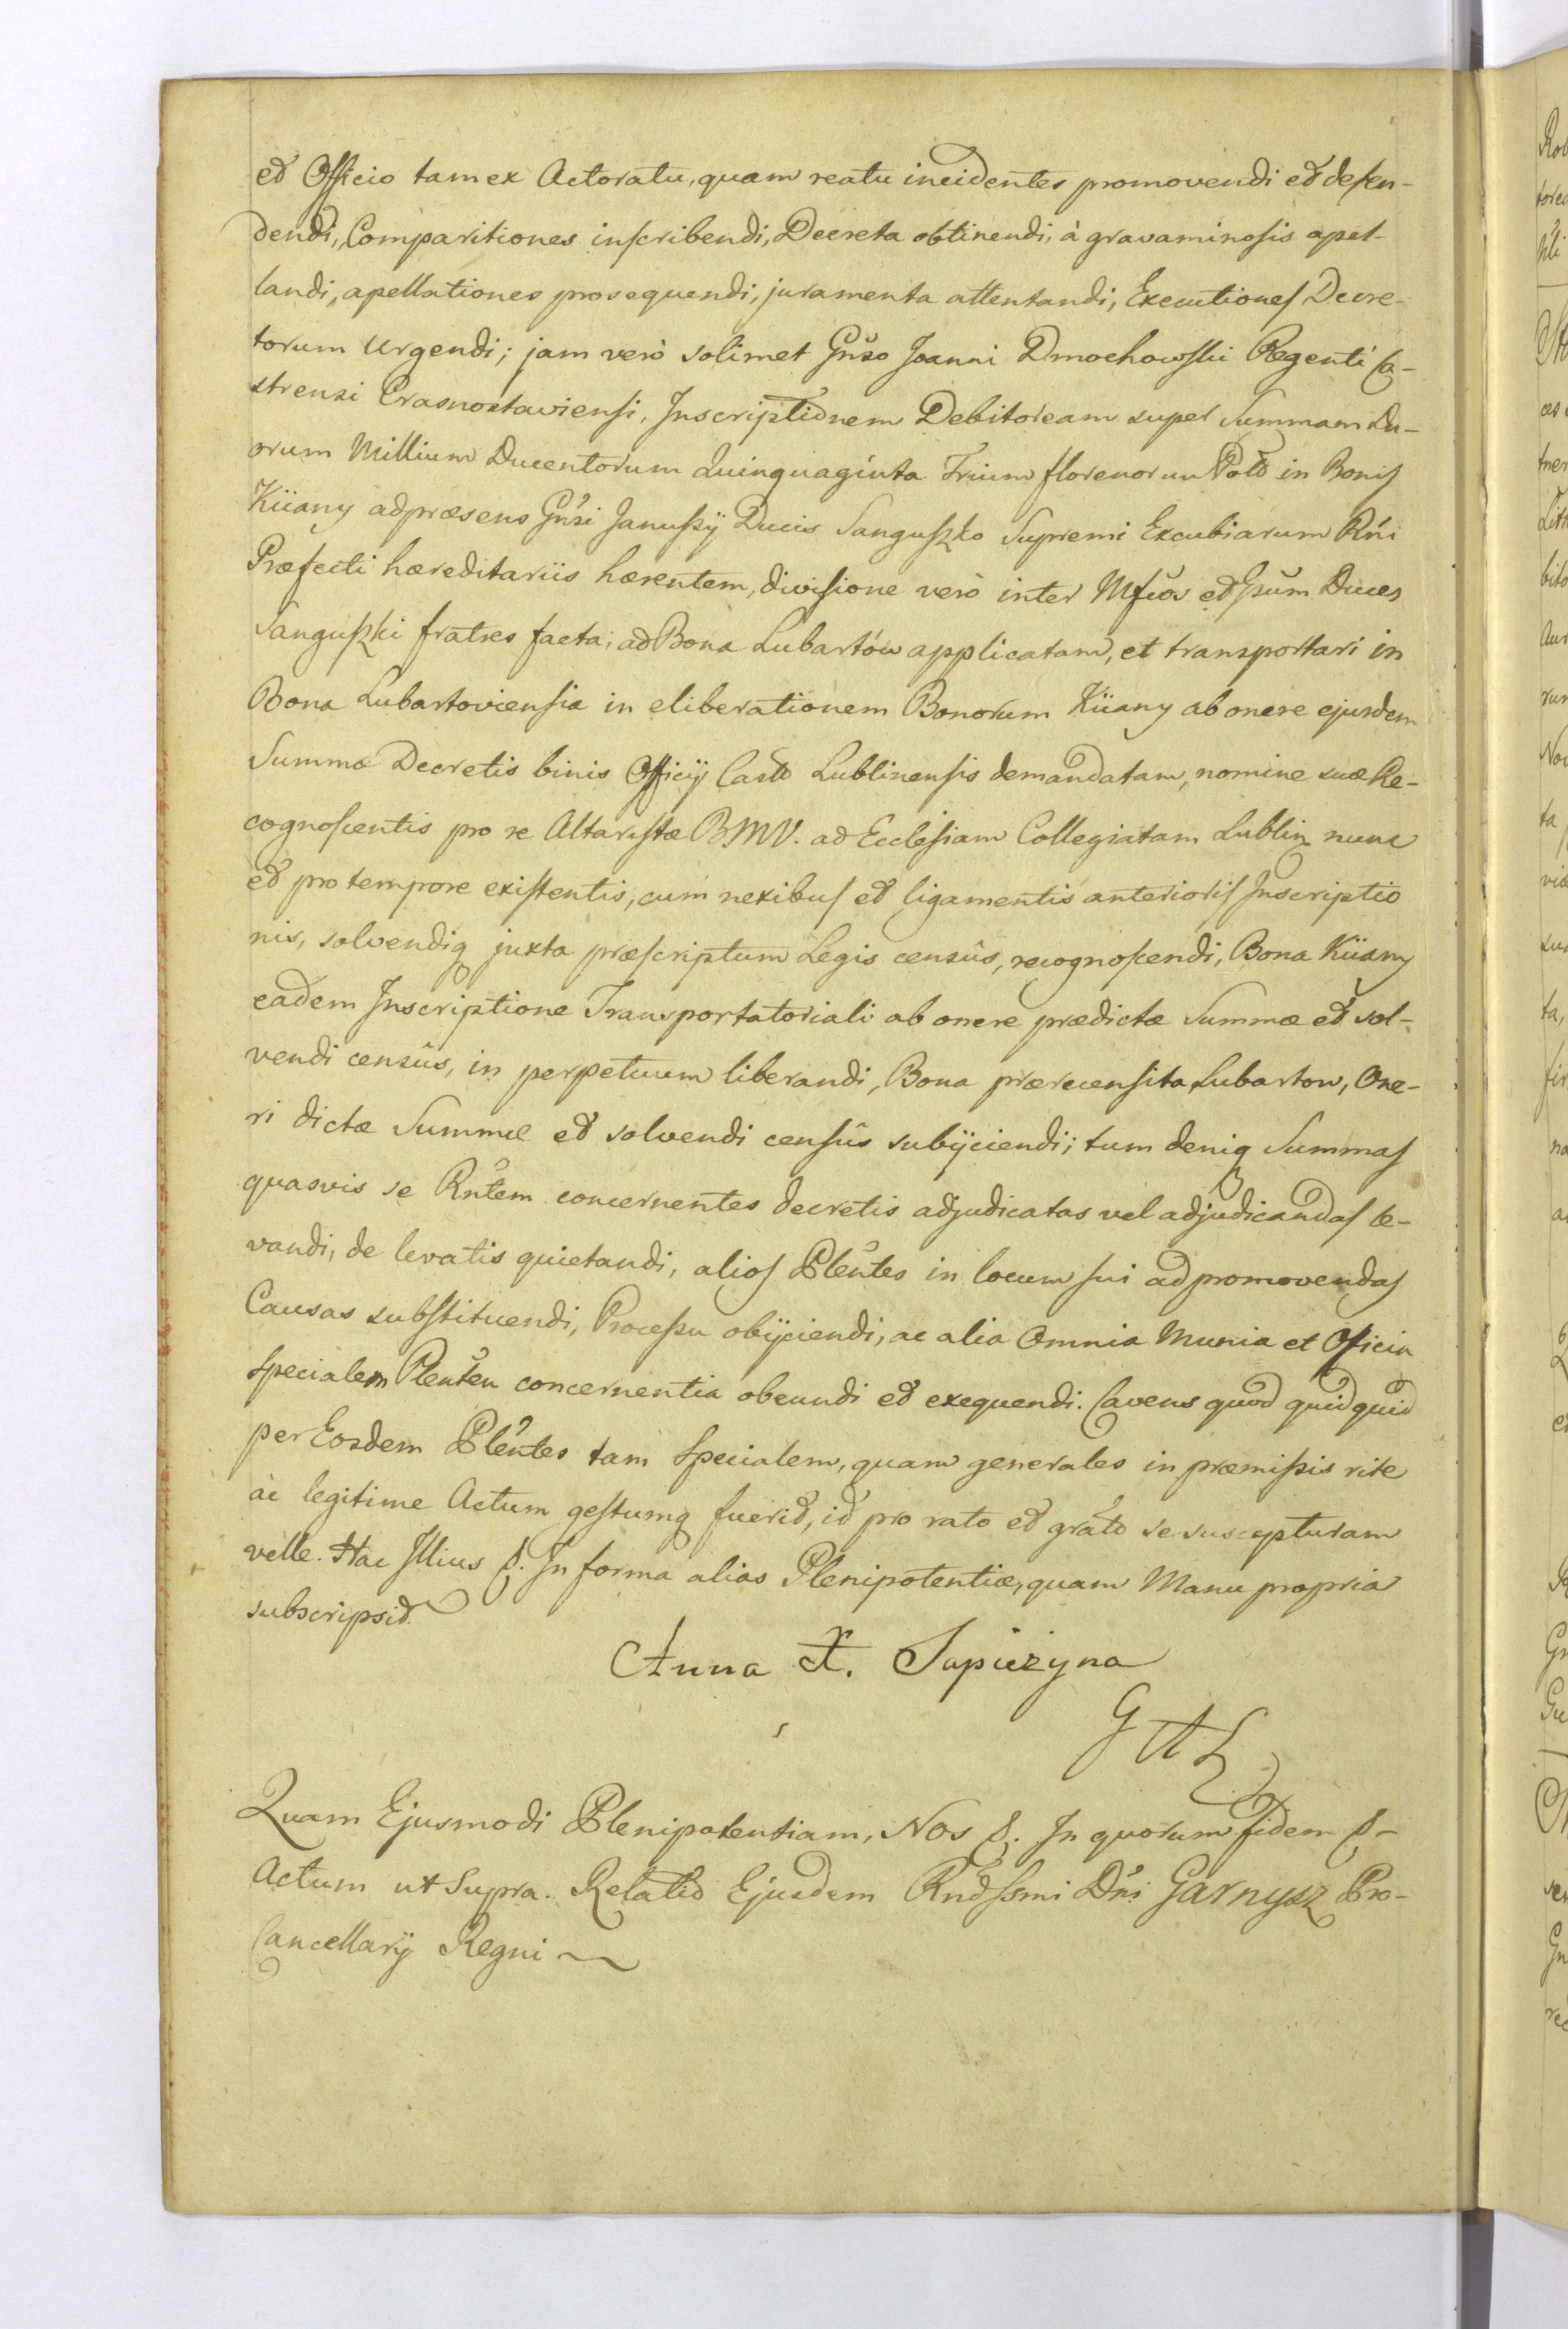 et Officio tam ex Actoratu, quam reatu incidentes promovendi et defen-
dendi, Comparitiones inscribendi, Decreta obtinendi, à gravaminosis apel-
landi, apellationes prosequendi, juramenta attentandi, Executiones Decre-
torum urgendi; jam verò solimet Gnŝo Joanni Dmochowski Regenti Ca-
strensi Crasnostaviensi, Inscriptionem Debitoream super Summam Du-
orum Millium Ducentorum Quinquaginta Trium florenorum Pold in Bonis
Kiiany ad præsens Gnŝi Janussÿ Ducis Sanguszko Supremi Excubiarum Rńi
Præfecti hæreditariis hærentem, divisione verò inter Mfcos et Gsum Duces
Sanguszki fratres facta, ad Bona Lubartów applicatam, et transportari in
Bona Lubartoviensia in eliberationem Bonorum Kiiany ab onere ejusdem
Summæ Decretis binis Officij Castr Lublinensis demandatam, nomine suæ Re-
cognoscentis pro re Altaristæ B.M.V. ad Ecclesiam Collegiatam Lublin nunc
et pro tempore existentis, cum nexibus et ligamentis anterioris Inscriptio
nis, solvendiq juxta præscriptum Legis censûs, recognoscendi, Bona Kiiany
eadem Inscriptione Transportatoriali ab onere prædictæ Summæ et sol-
vendi censûs, in perpetuum liberandi, Bona prærecensita Lubartow, One-
ri dictæ Summæ et solvendi censûs subÿciendi; tum deniq Summas
quasvis se Rnŧem concernentes decretis adjudicatas vel adjudicandas le-
vandi, de levatis quietandi, alios Plentes in locum sui ad promovendas
Causas substituendi, Processu obÿciendi, ac alia Omnia Munia et Officia
specialem Plentem concernentia obeundi et exequendi. Cavens quod quidquid
per Eosdem Plentes tam specialem, quam generales in præmissis rite
àc legitime Actum gestumq fuerit, id pro rato et grato se suscepturam
velle. Hac Illius S. In forma alias Plenipotentiæ, quam Manu propria
subscripsit.
Anna X. Sapieżyna
Quam Ejusmodi Plenipotentiam, Nos S. In quorum fidem S-
Actum ut Supra. Relatio Ejusdem Rndssmi Dńi Garnysz Pro-
Cancellarij Regni